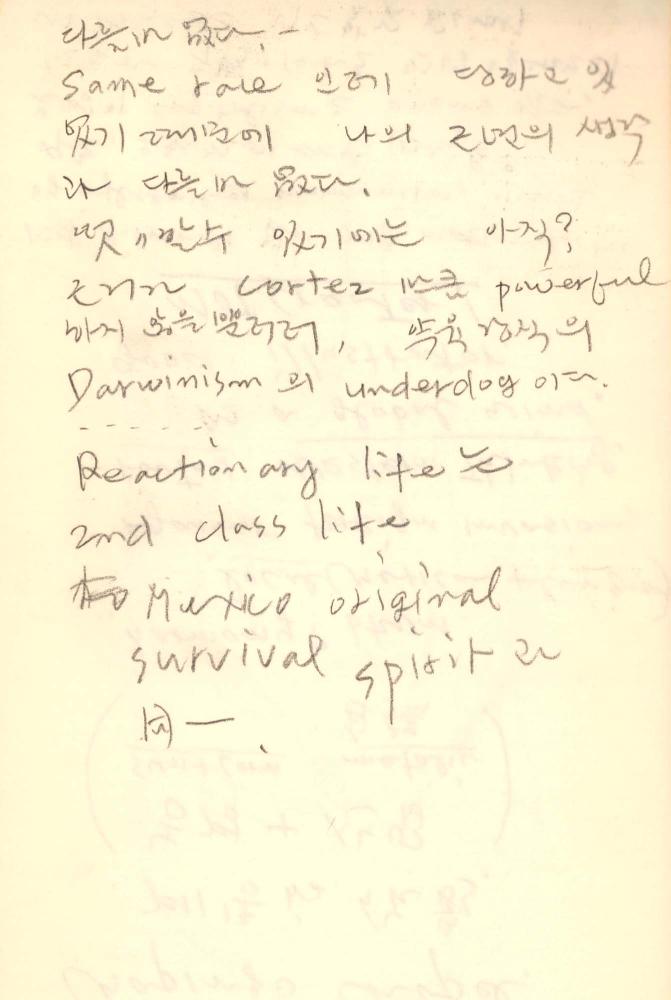 다를바 없다.
Same race 인데 당하고 있
었기 때문에 나의 근본의 생각
과 다를바 없다.
떳떳할수 있기에는 아직?
Cortez 만큼 powerful
하지 않을뿐더러, 약육강식의
Darwinism 의 underdog 이다.
- - - - - -
Reactionary life 는
2nd class life
Mexico original
survival spirit 과
同一.